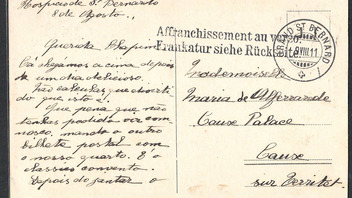 Hospice de St Bernardo
8 de Agosto,
Querida
Cá chegámos acima depois
de um dia delicioso.
Não calculas que divertido
que isto é.
Que pena que não
tenhas podido vir com-
nosco. mando o outro
bilhete postal com
o nosso quarto. É o
classico convento.
Depois do jantar o
Affranchissement au verso
Frankatur siehe Rückseite
GRAND ST BERNARD
9.VIII.11
Mademoiselle
Maria de
Caux Palace
Caux
sur Territet